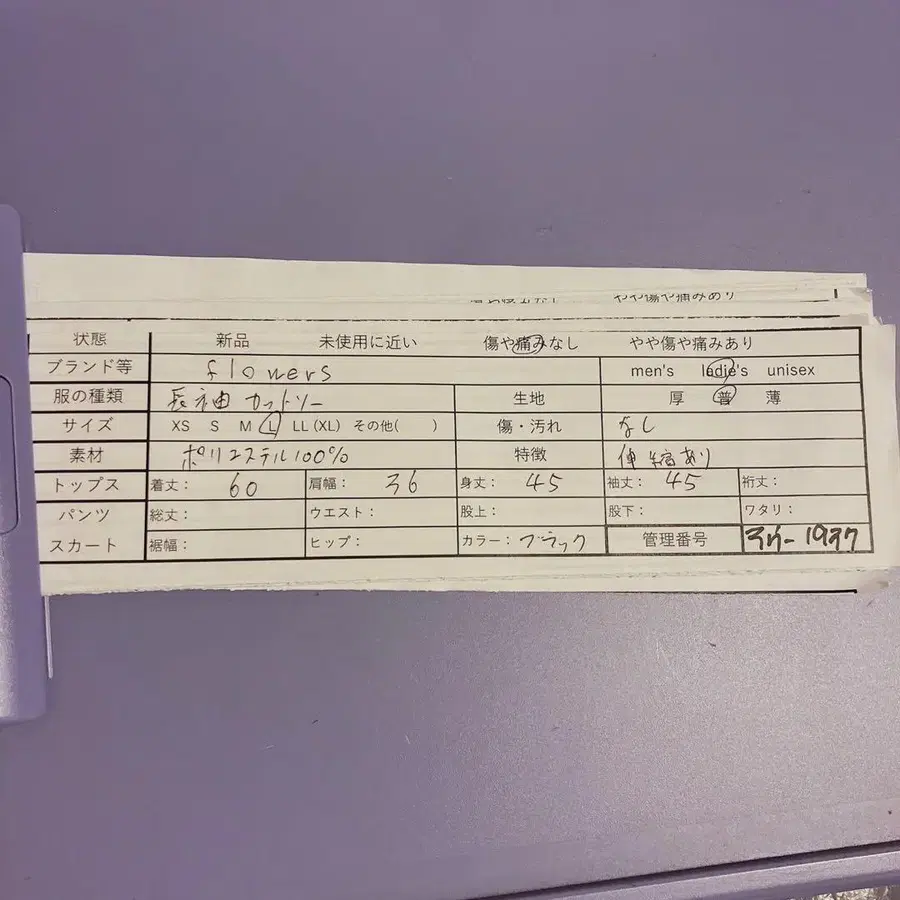 やや傷や痛みあり
状態 新品 未使用に近い 傷や痛みなし やや傷や痛みあり
ブランド等 flowers men's ladie's unisex
服の種類 長袖 カットソー 生地 厚 普 薄
サイズ XS S M L LL (XL) その他( ) 傷・汚れ なし
素材 ポリエステル100% 特徴 伸縮あり
トップス 着丈: 60 肩幅: 36 身丈: 45 袖丈: 45 裄丈:
パンツ 総丈: ウエスト: 股上: 股下: ワタリ:
スカート 裾幅: ヒップ: カラー: ブラック 管理番号